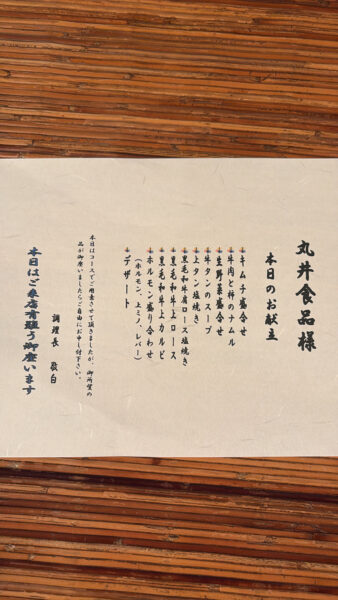 丸井食品様
本日のお献立
キムチ盛合せ
牛肉と柿のナムル
生野菜盛合せ
牛タンのスープ
上タン塩焼き
黒毛和牛肩ロース塩焼き
黒毛和牛上ロース
黒毛和牛上カルビ
ホルモン盛り合わせ
(ホルモン、上ミノ、レバー)
デザート
本日はコースでご用意させて頂きましたが、御所望の
品が御座いましたらご自由にお申し付下さい。
調理長 敬白
本日はご来店有難う御座います